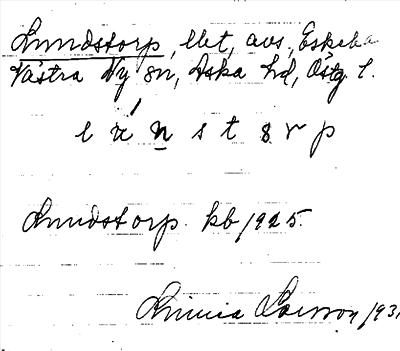 Lundstorp, lht, avs, Eskeba
Västra Ny sn, Aska hd, Östg. l.
l u n s t o r p
Lundstorp. kb 1925.
Linnea Larsson 193